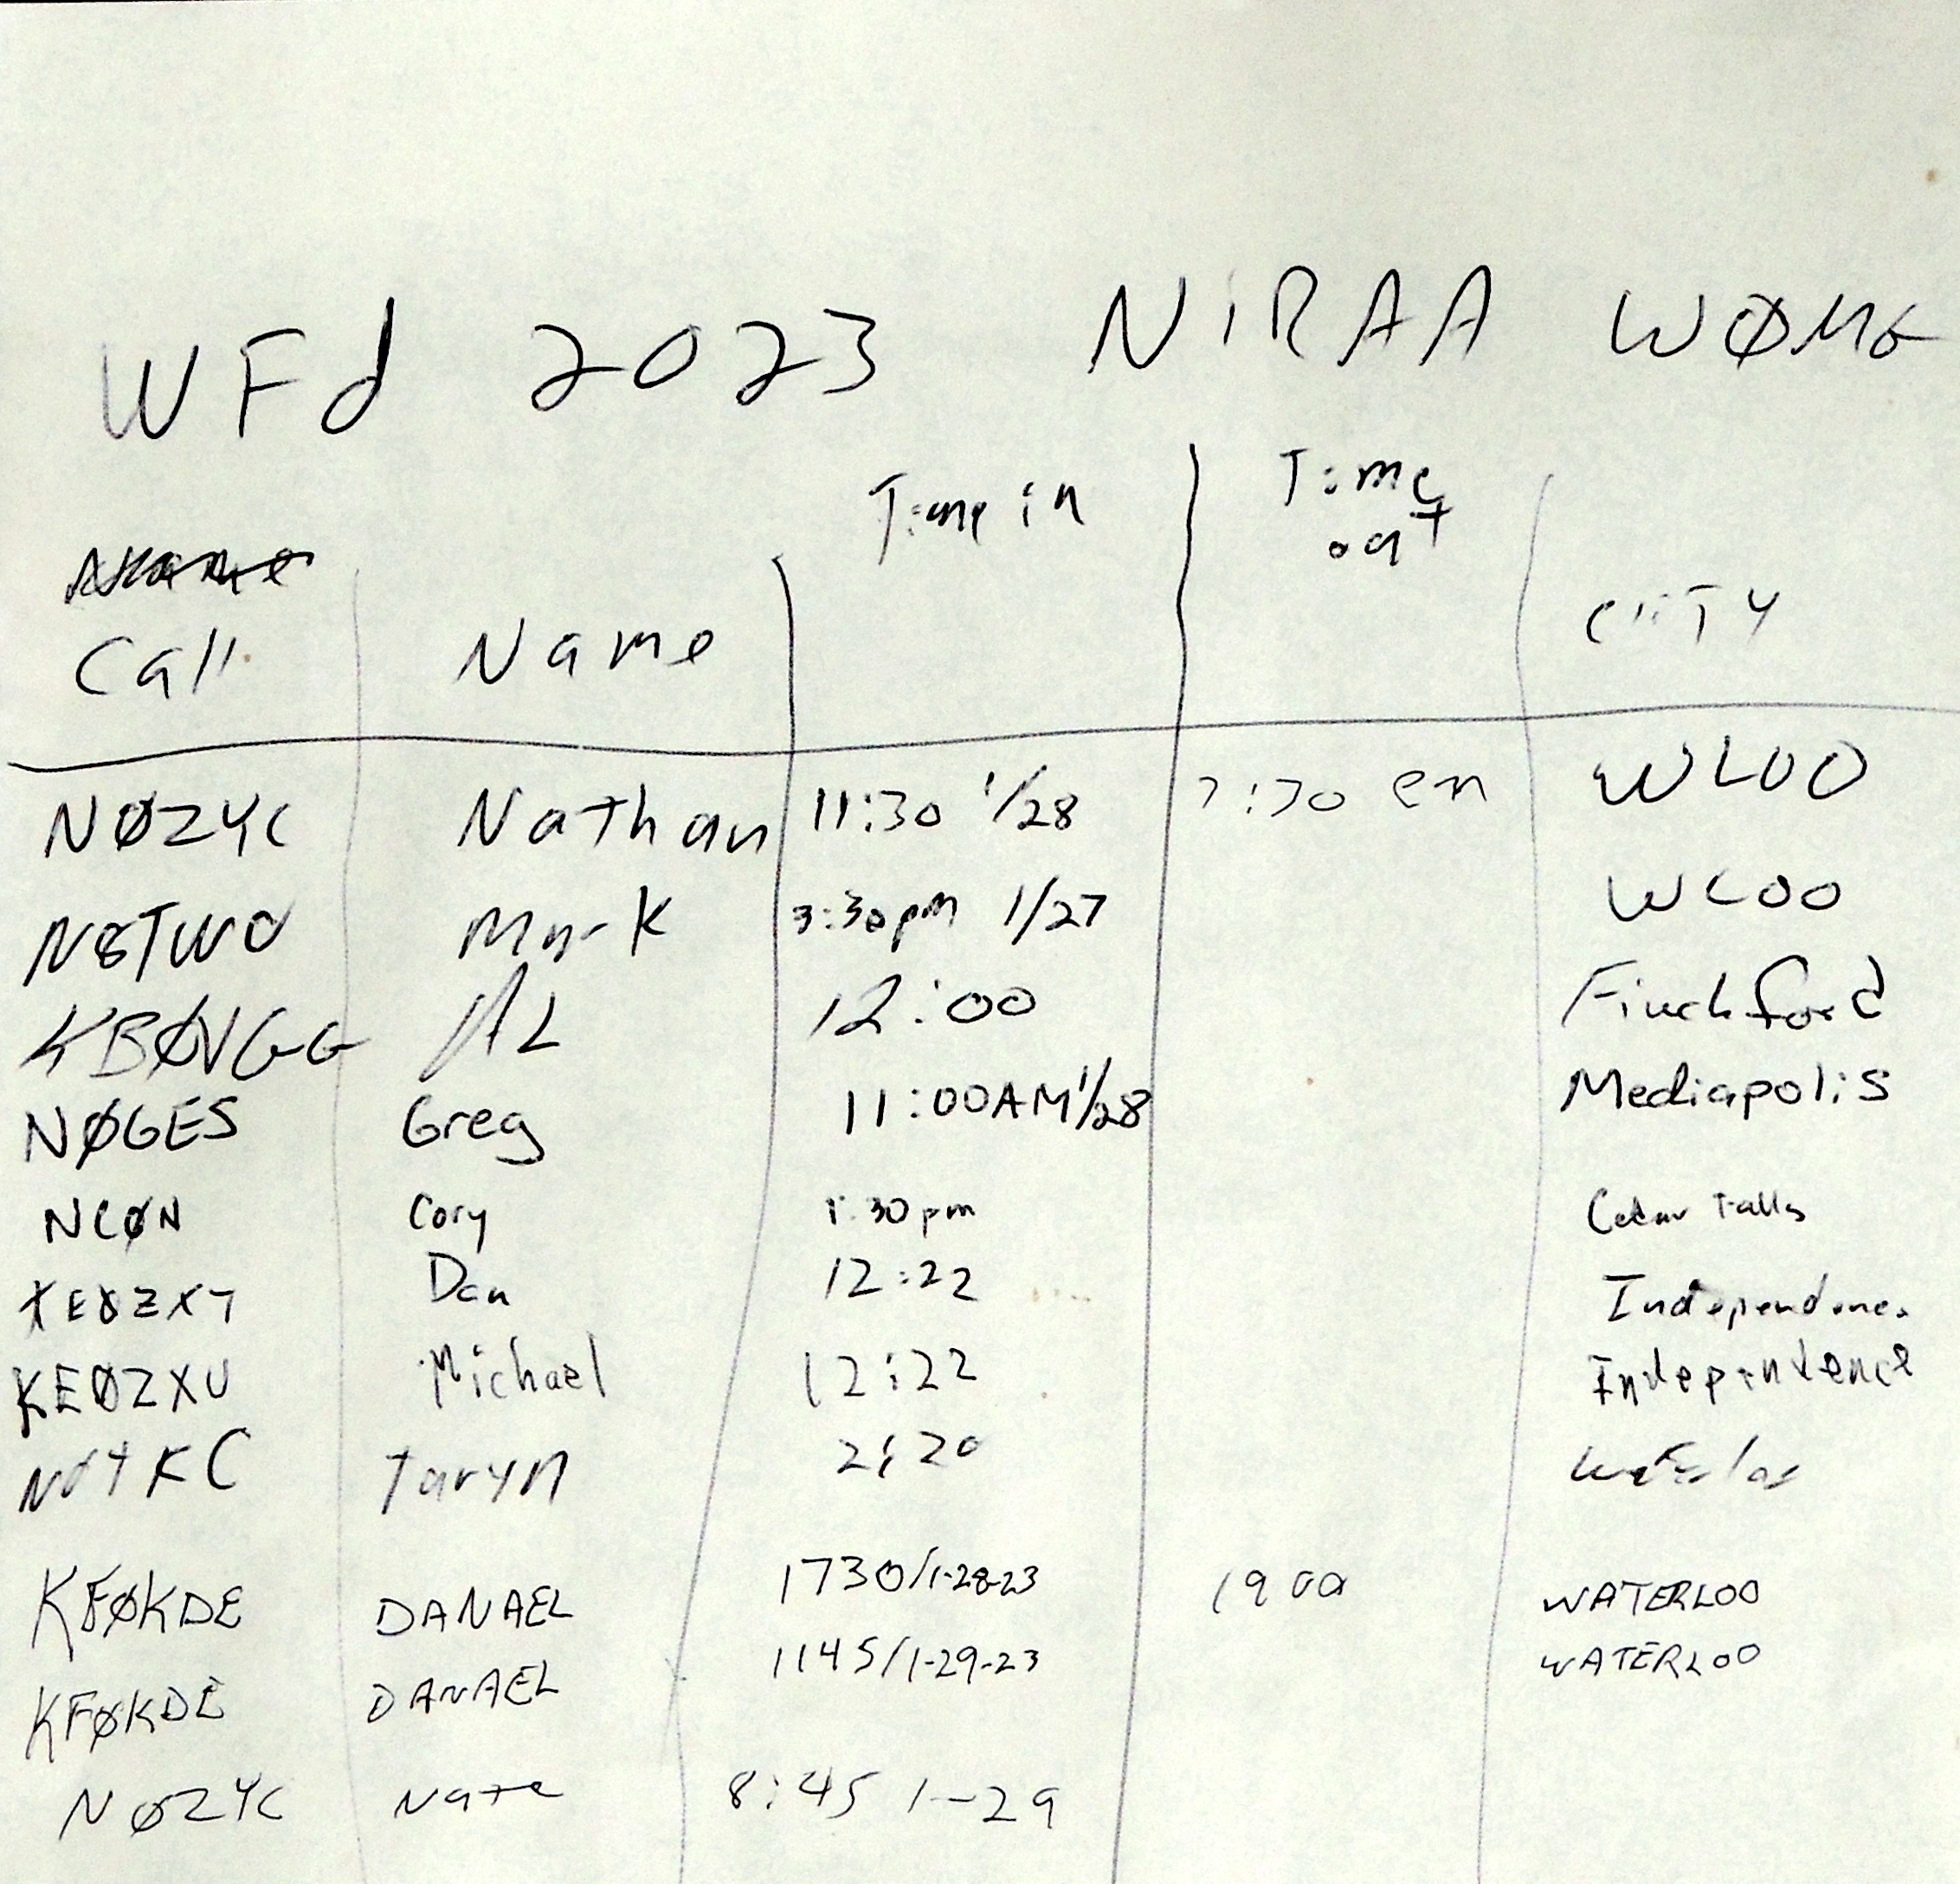 WFd 2023 NiRAA WØMG
Time in Time out
Call Name CITY
NØZYC Nathan 11:30 1/28 7:30 WLOO
N8TWO Mark 3:30pm 1/27 WLOO
KBØVGG AL 12:00 Finchford
NØGES Greg 11:00AM 1/28 Mediapolis
NCØN Cory 1:30pm Cedar Falls
Dan 12:22 Independence
KEØZXU Michael 12:22 Independence
Taryn 2:20
KFØKDE DANAEL 1730/1-28-23 1900 WATERLOO
KFØKDE DANAEL 1145/1-29-23 WATERLOO
NØZYC Nate 8:45 1-29